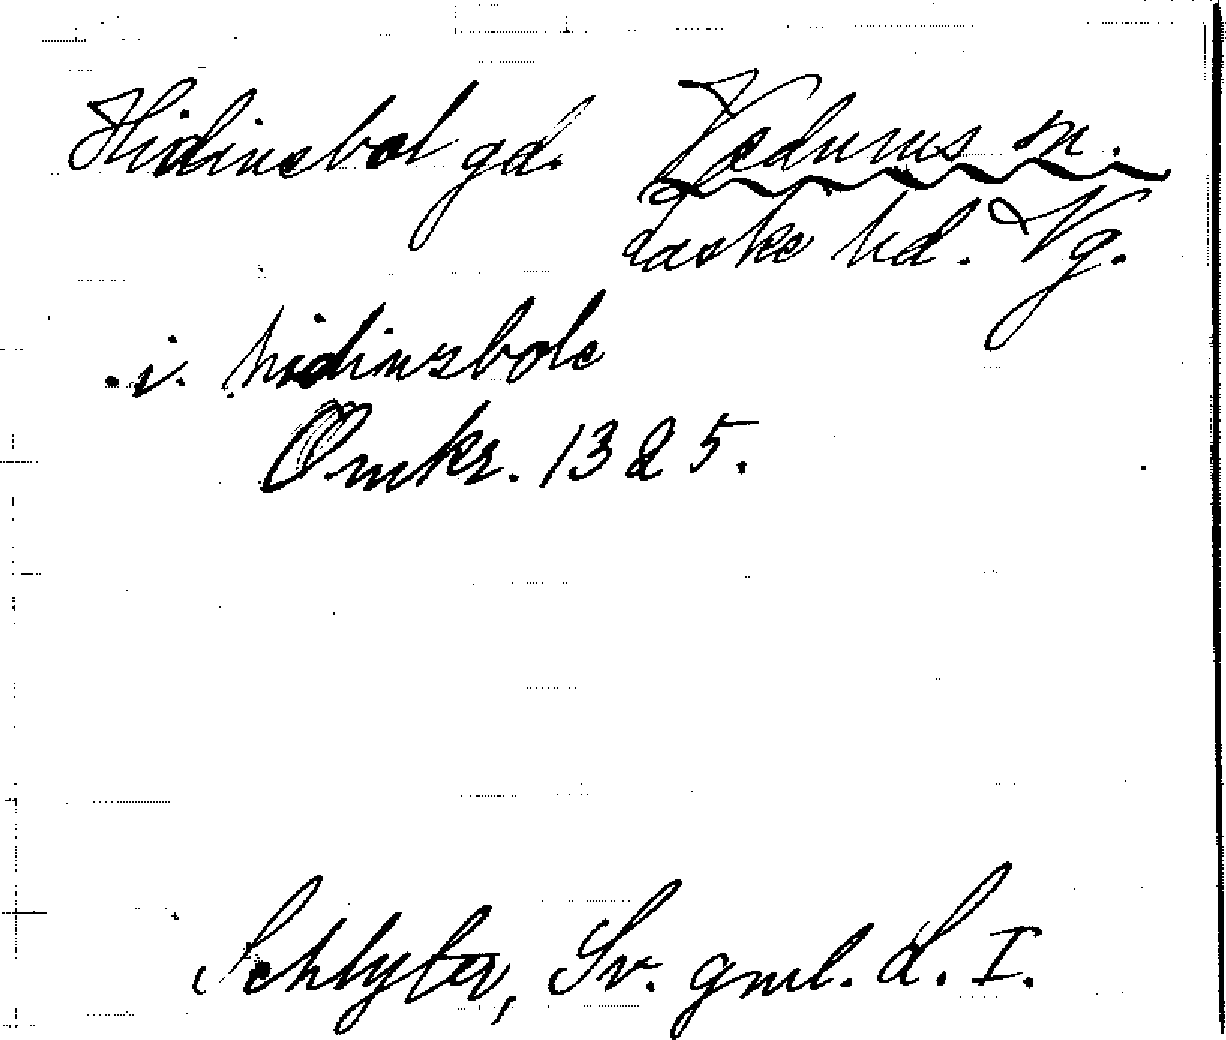 Hidinsbol gd. Vedums sn.
Laske hd. Vg.
.i. hidinzbole
Omkr. 1325.
Schlyter, Sv. gml. L. I.